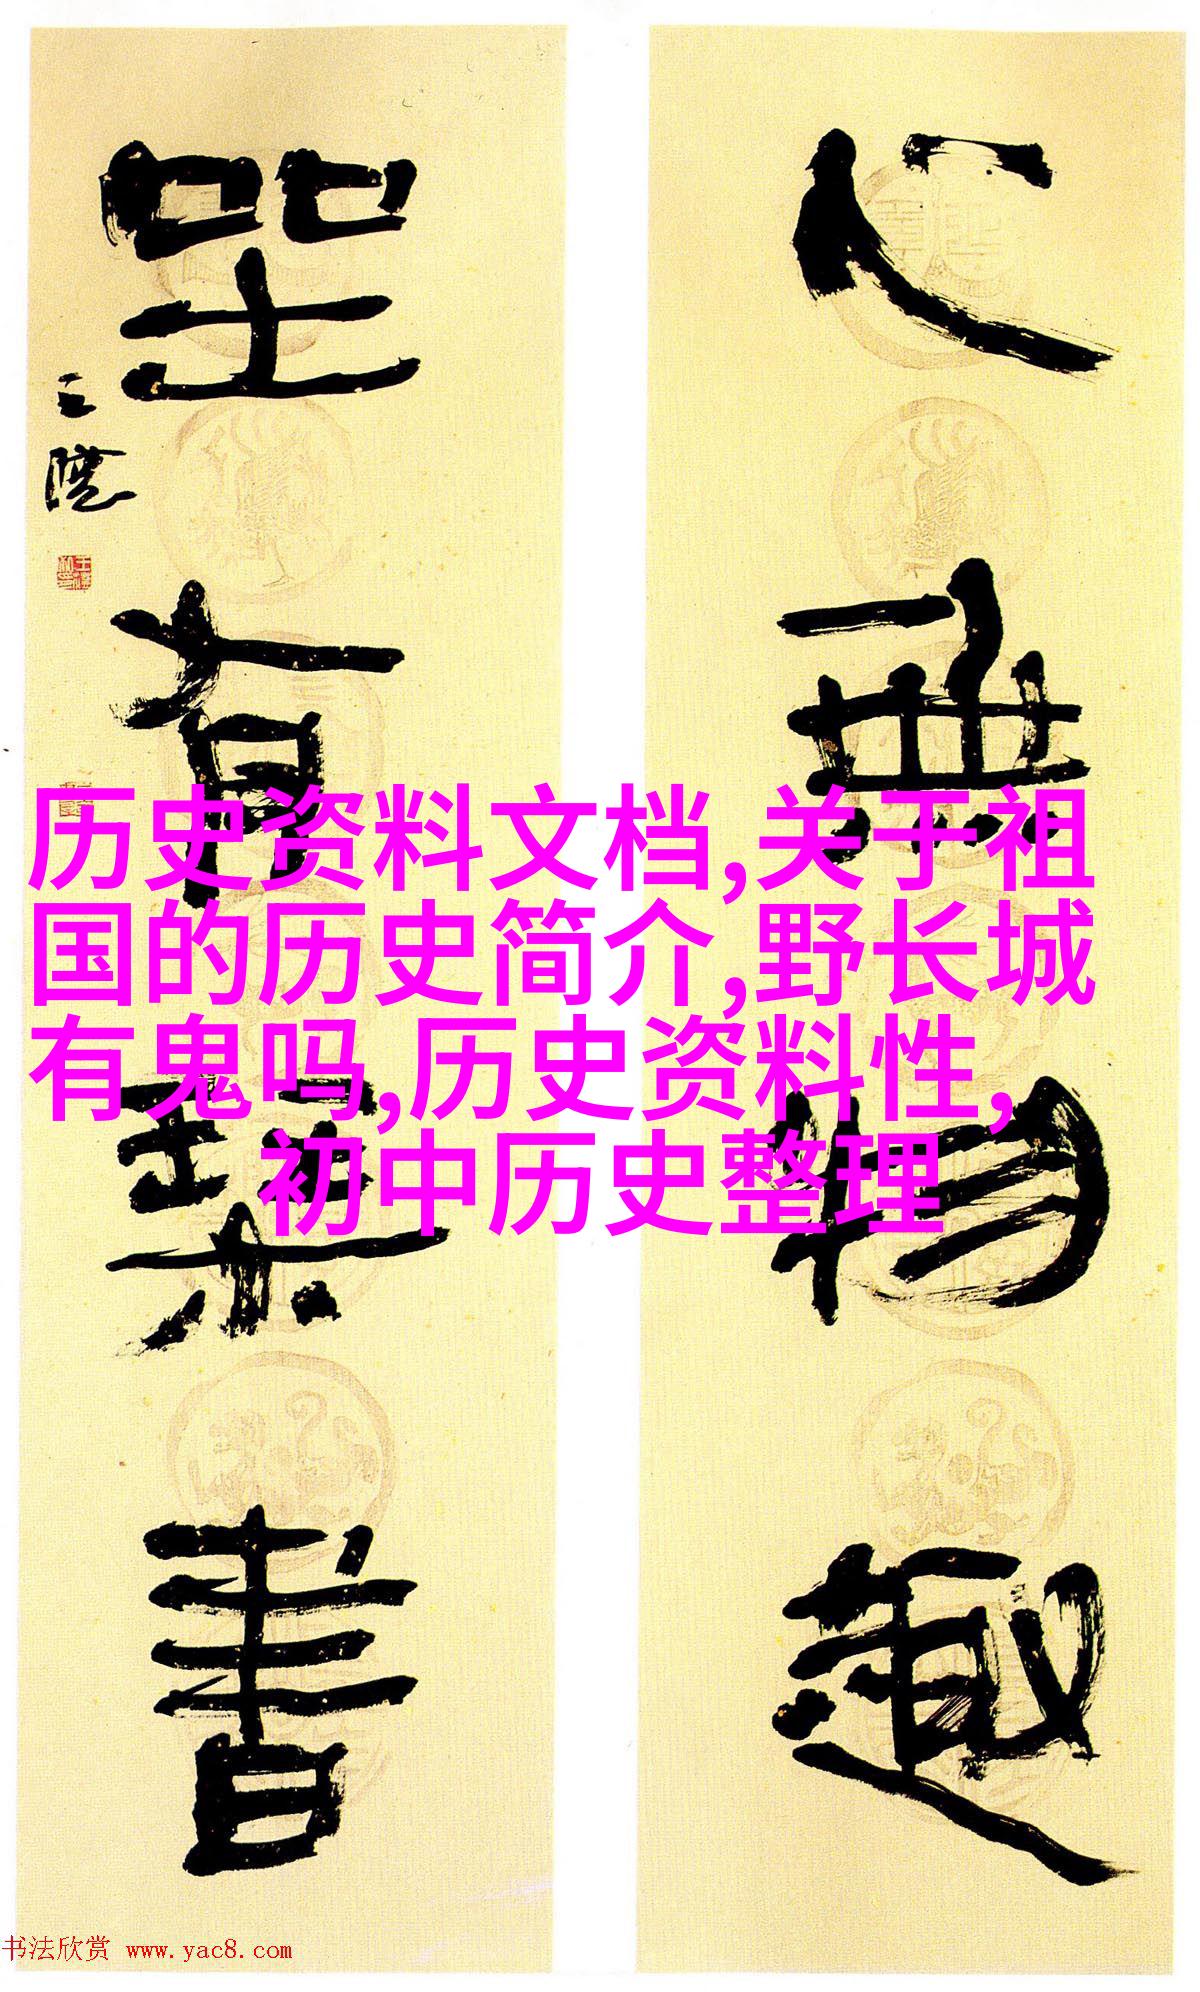 心無物趣
坐有琴書
王澄
历史资料文档,关于祖
国的历史简介,野长城
有鬼吗,历史资料性,
初中历史整理
书法欣赏 www.yac8.com